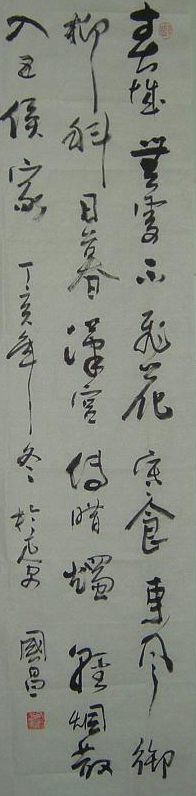 春城無處不飛花寒食東風御
柳斜日暮漢宮傳腊燭輕烟散
入五侯家丁亥年冬於國昌